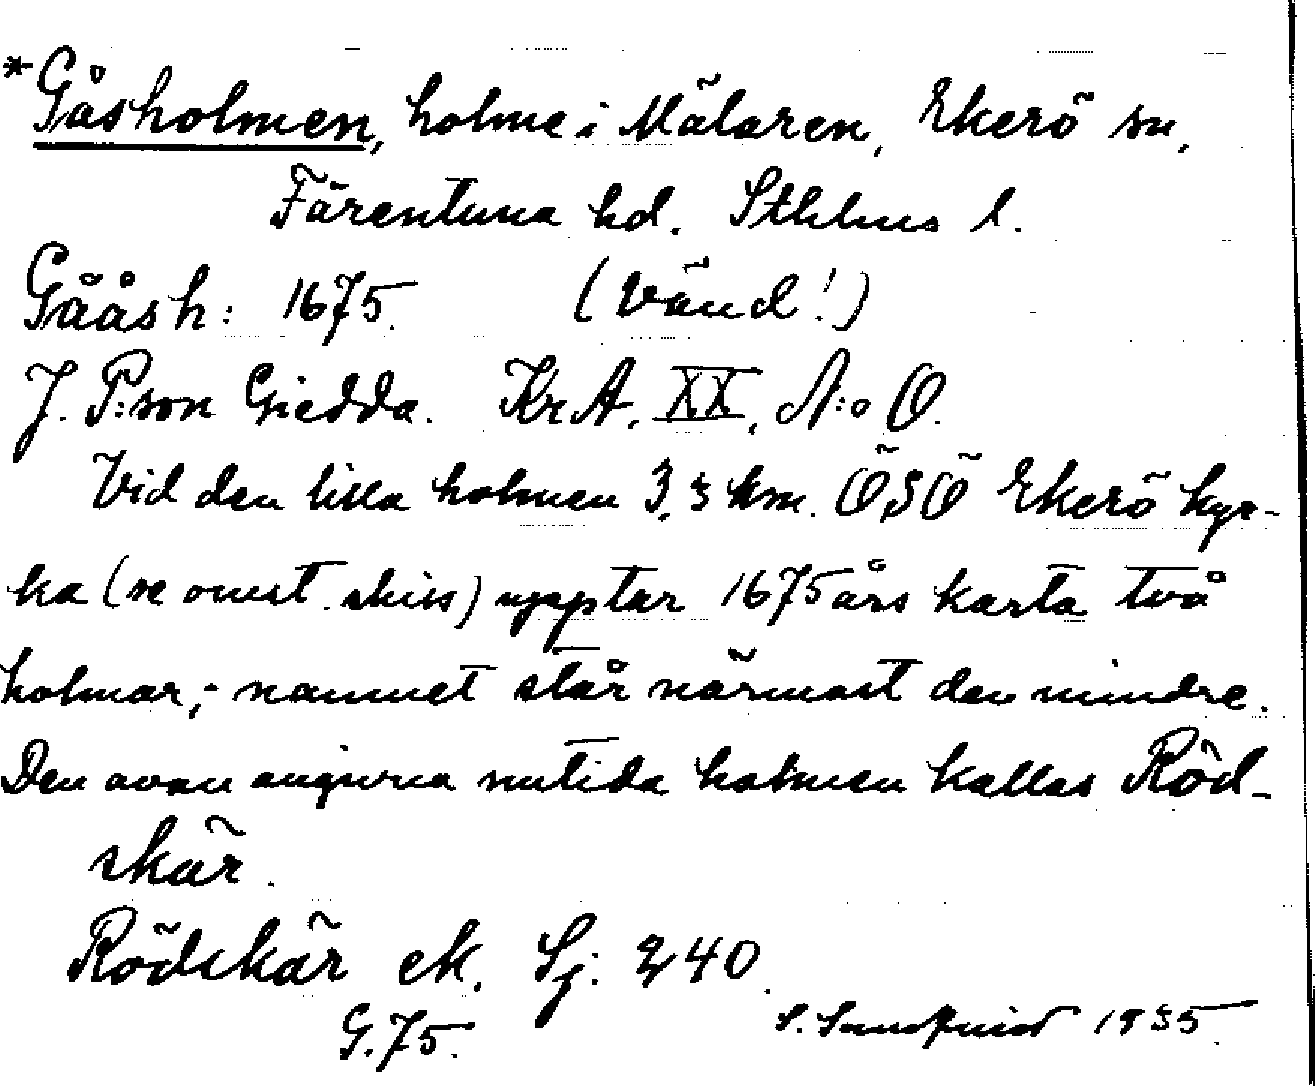 *Gåsholmen, holme i Mälaren, Ekerö sn,
Färentuna hd. Sthlms l.
Gååsh: 1675. (Vänd!)
J. P:son Giedda. KrA, XX, N:o O.
Vid den lilla holmen 3,3 km. ÖSÖ Ekerö kyr-
ka (se omst. skiss) upptar 1675 års karta två
holmar; namnet står närmast den mindre.
Den ovan angivna nutida holmen kallas Röd-
skär.
Rödskär ek. Sj: 240.
G.75. 1935.